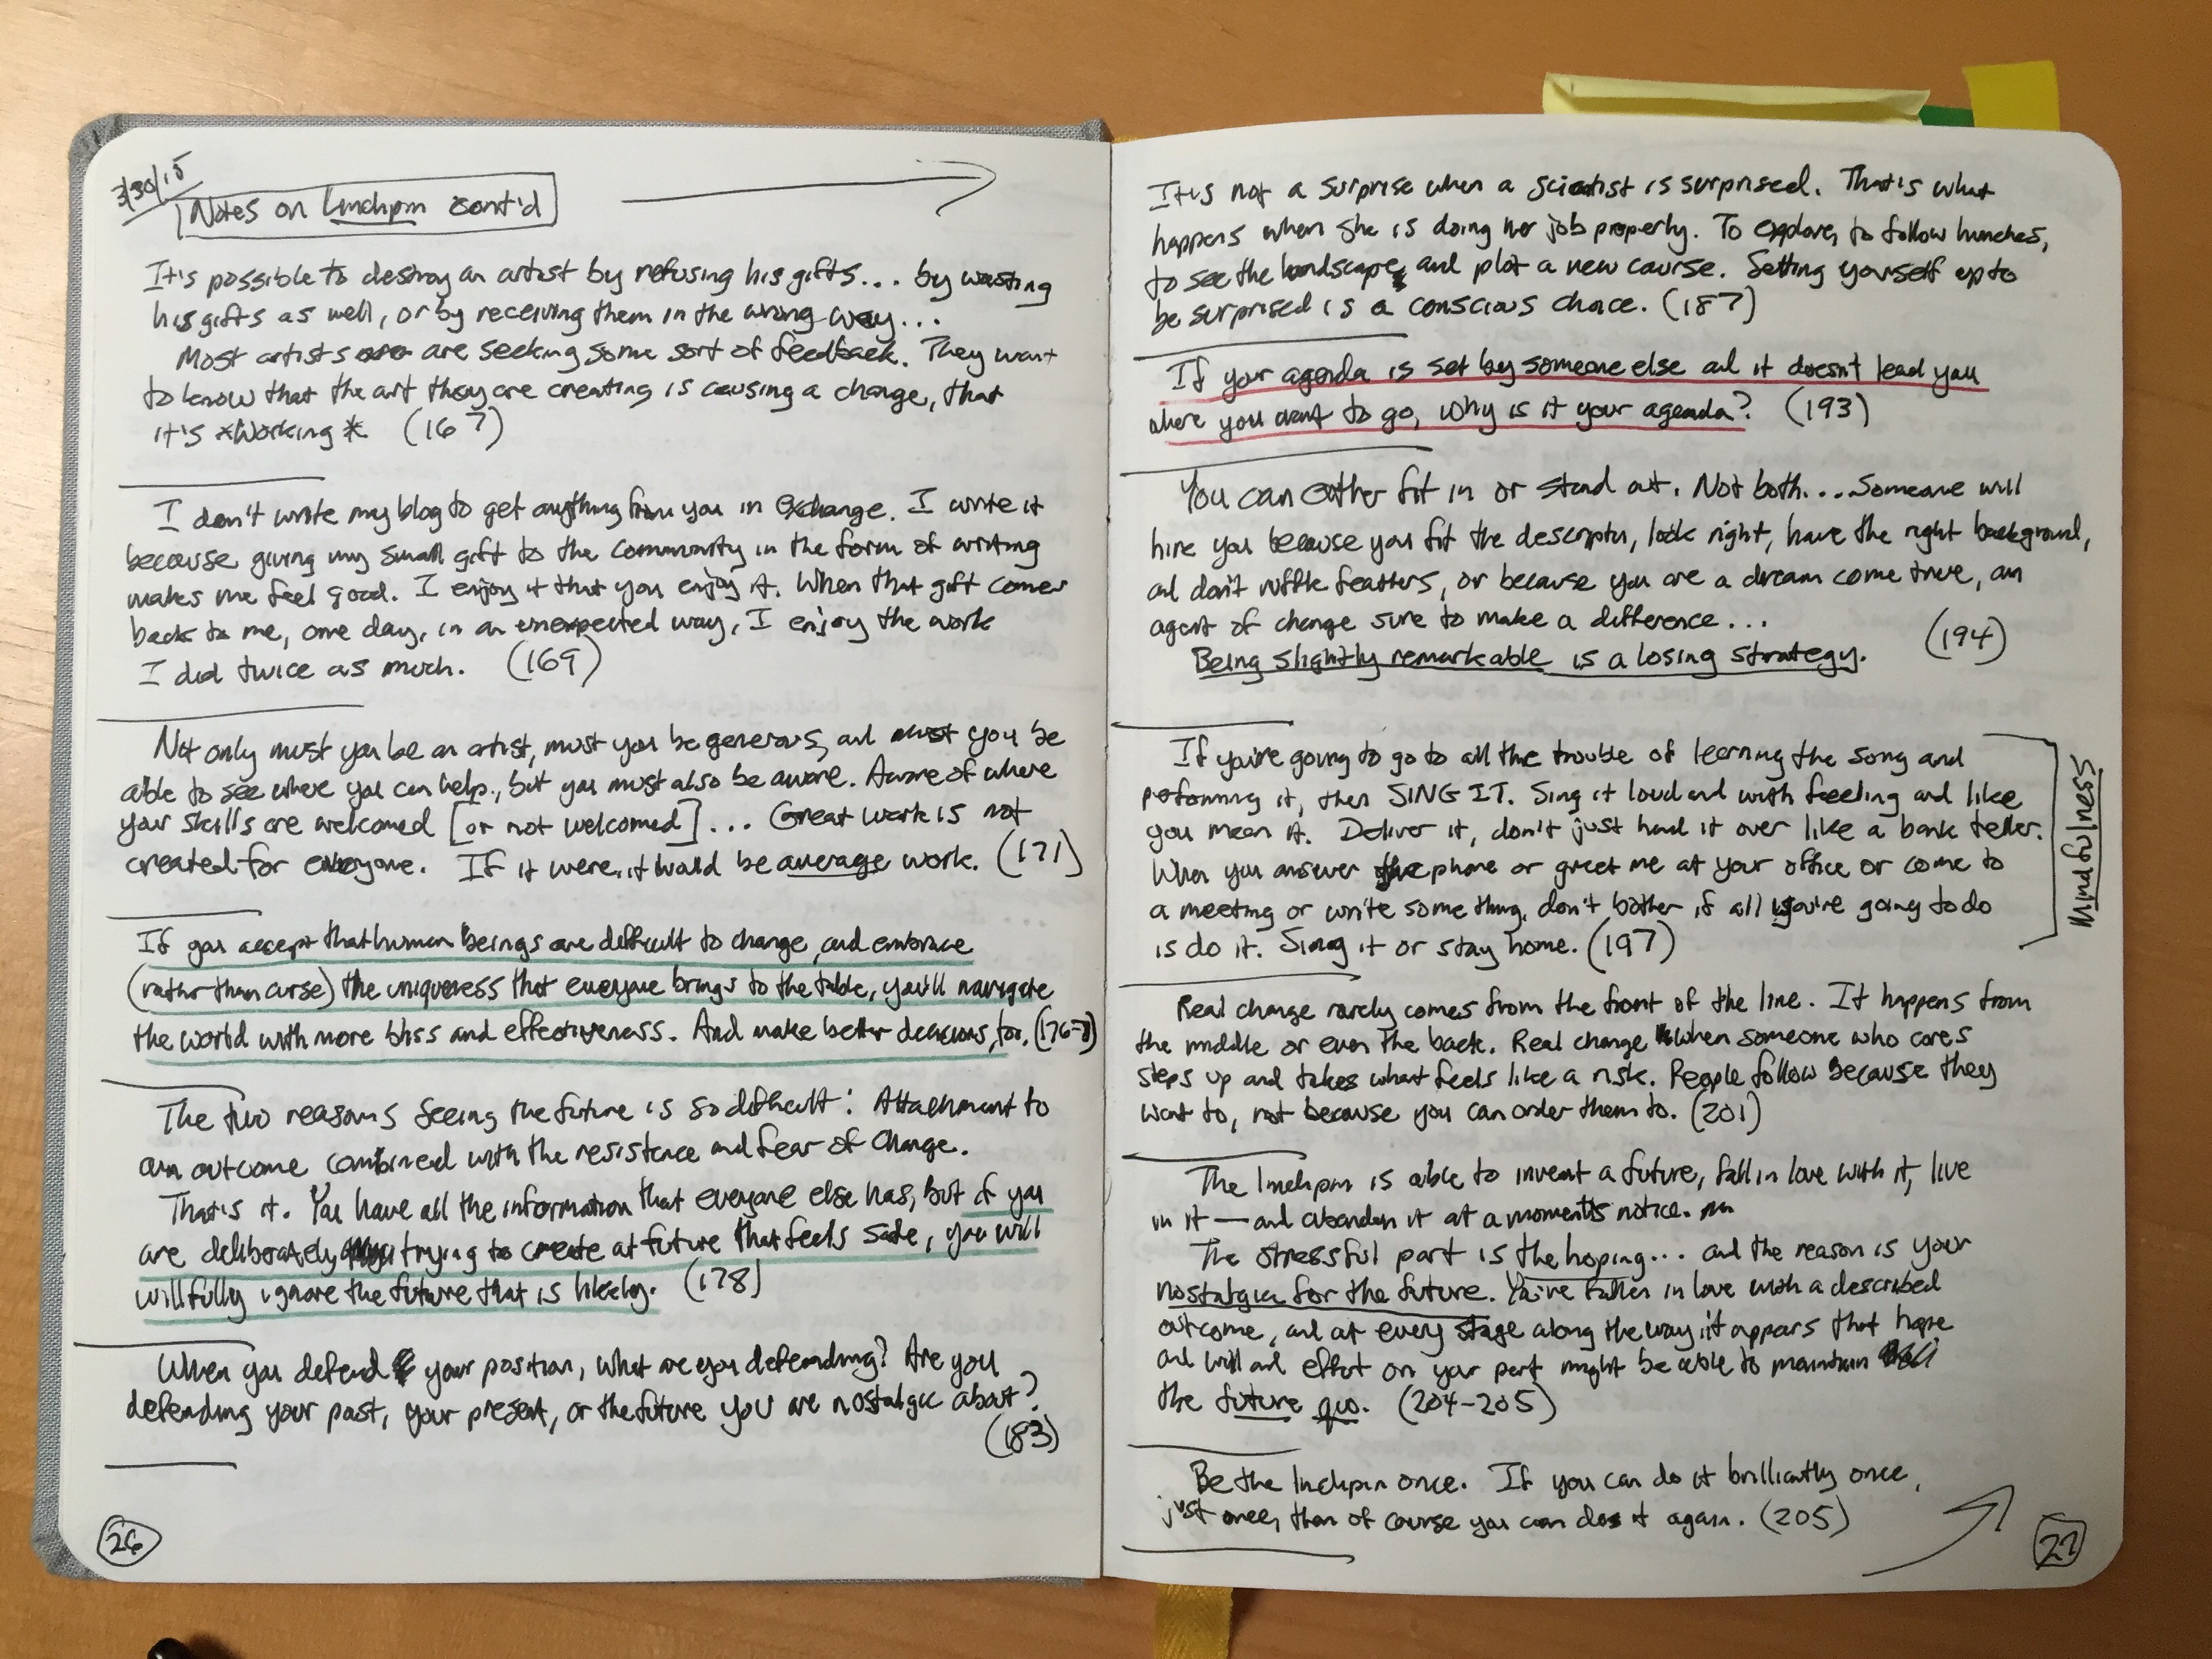 3/30/15
Notes on Linchpin cont'd
It's possible to destroy an artist by refusing his gifts... by wasting
his gifts as well, or by receiving them in the wrong way...
Most artists are seeking some sort of feedback. They want
to know that the art they are creating is causing a change, that
it's *working* (167)
I don't write my blog to get anything from you in exchange. I write it
because giving my small gift to the community in the form of writing
makes me feel good. I enjoy it that you enjoy it. When that gift comes
back to me, one day, in an unexpected way, I enjoy the work
I did twice as much. (169)
Not only must you be an artist, must you be generous, and must you be
able to see where you can help, but you must also be aware. Aware of where
your skills are welcomed [or not welcomed]... Great work is not
created for everyone. If it were, it would be average work. (171)
If you accept that human beings are difficult to change, and embrace
(rather than curse) the uniqueness that everyone brings to the table, you'll navigate
the world with more bliss and effectiveness. And make better decisions, too. (176-7)
The two reasons seeing the future is so difficult: Attachment to
an outcome combined with the resistance and fear of change.
That's it. You have all the information that everyone else has, but if you
are deliberately trying to create at future that feels safe, you will
willfully ignore the future that is likely. (178)
When you defend your position, what are you defending? Are you
defending your past, your present, or the future you are nostalgic about?
(183)
26
It's not a surprise when a scientist is surprised. That's what
happens when she is doing her job properly. To explore, to follow hunches,
to see the landscape and plot a new course. Setting yourself up to
be surprised is a conscious choice. (187)
If your agenda is set by someone else and it doesn't lead you
where you want to go, why is it your agenda? (193)
You can either fit in or stand out. Not both... Someone will
hire you because you fit the description, look right, have the right background,
and don't ruffle feathers, or because you are a dream come true, an
agent of change sure to make a difference...
(194)
Being slightly remarkable is a losing strategy.
If you're going to go to all the trouble of learning the song and
performing it, then SING IT. Sing it loud and with feeling and like
you mean it. Deliver it, don't just hand it over like a bank teller.
When you answer the phone or greet me at your office or come to
a meeting or write something, don't bother if all you're going to do
is do it. Sing it or stay home. (197)
Mindfulness
Real change rarely comes from the front of the line. It happens from
the middle or even the back. Real change when someone who cares
steps up and takes what feels like a risk. People follow because they
want to, not because you can order them to. (201)
The linchpin is able to invent a future, fall in love with it, live
in it — and abandon it at a moment's notice.
The stressful part is the hoping... and the reason is your
nostalgia for the future. You've fallen in love with a described
outcome, and at every stage along the way it appears that hope
and will and effort on your part might be able to maintain
the future quo. (204-205)
Be the linchpin once. If you can do it brilliantly once,
just once, then of course you can do it again. (205)
27